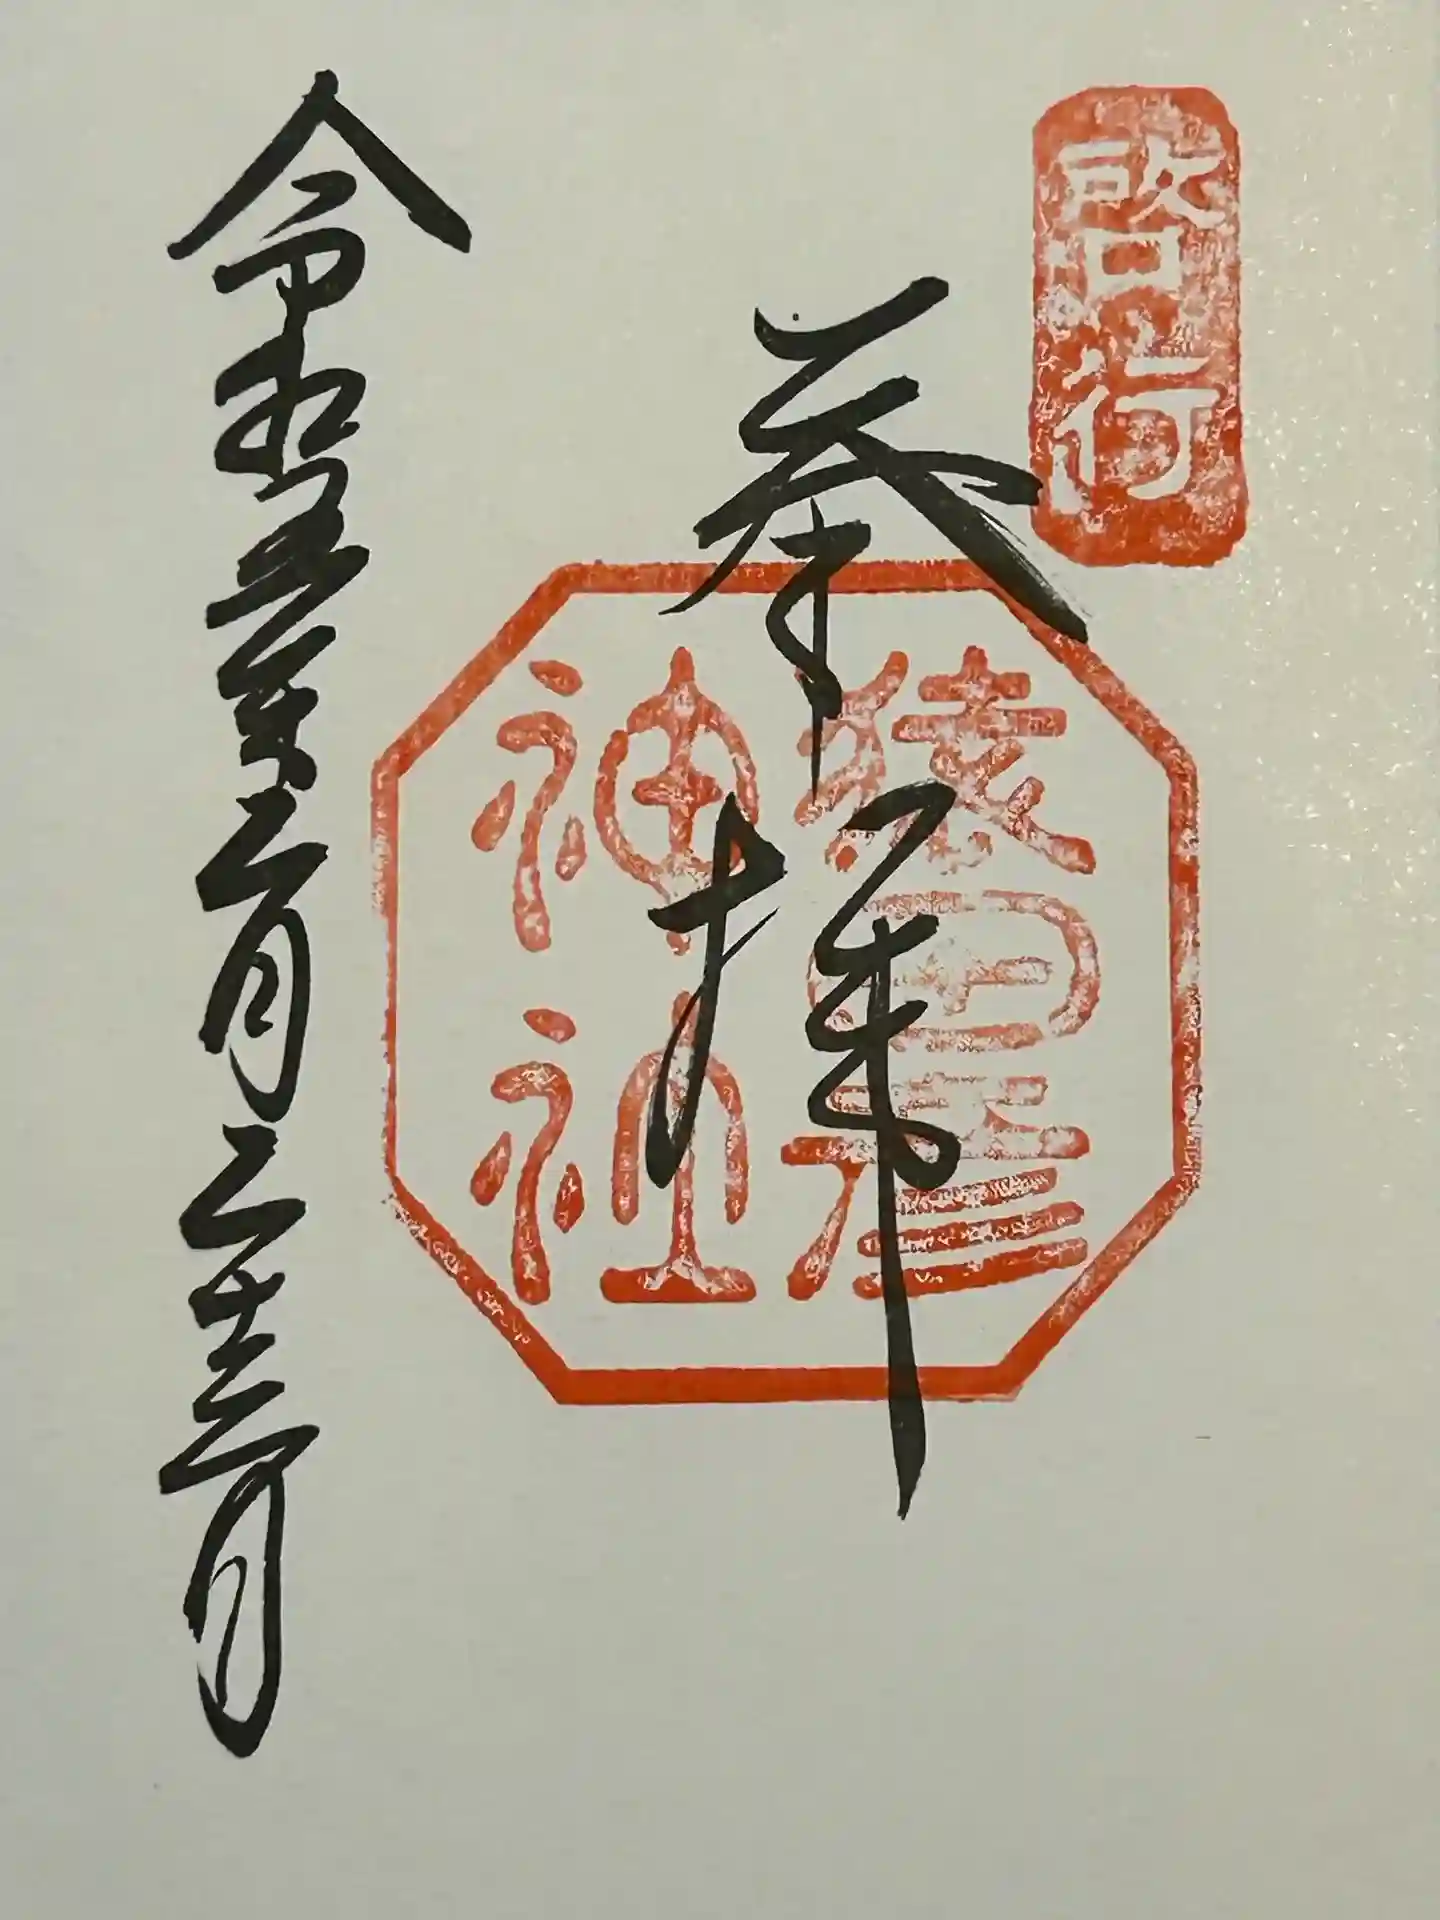 啓行
奉拝
猿田彦
神社
令和五年二月二十三日